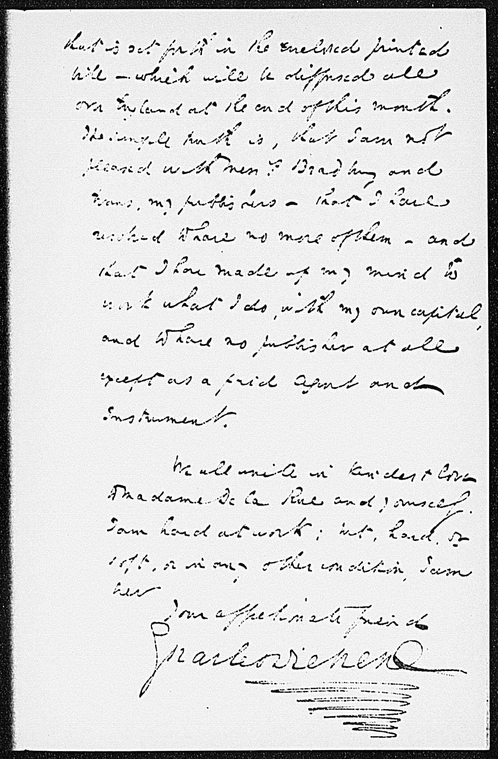 that is set forth in the enclosed printed
bill – which will be diffused all
over England at the end of this month.
The simple truth is, that I am not
pleased with Mess.rs Bradbury and
Evans, my publishers – that I have
resolved to have no more of them – and
that I have made up my mind to
work what I do, with my own capital,
and to have no publisher at all
except as a paid Agent and
Instrument.
We all unite in kindest love
to Madame De la Rue and yourself.
I am hard at work; but, hard, or
soft, or in any other condition, I am
ever
Your affectionate friend
Charles Dickens